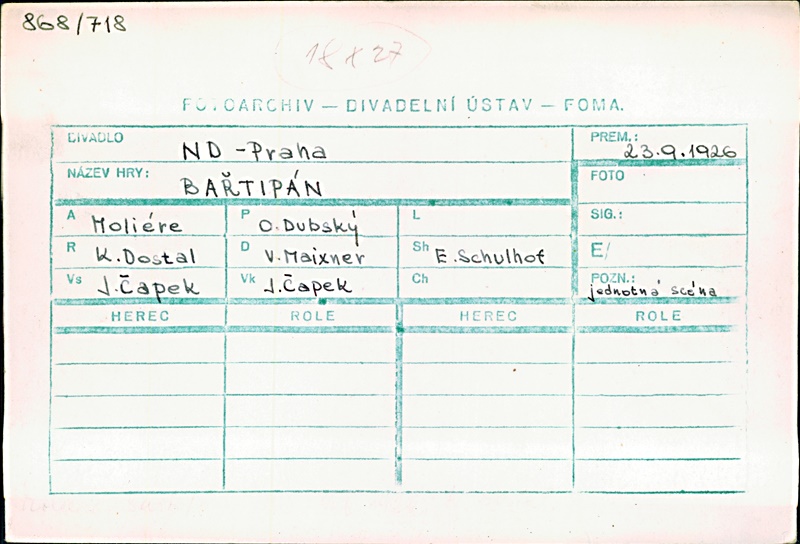 868/718
18 x 27
FOTOARCHIV — DIVADELNÍ ÚSTAV — FOMA.
DIVADLO ND - Praha PREM.: 23.9.1926
NÁZEV HRY: BAŘTIPÁN FOTO
A Moliére P O. Dubský L SIG.:
R K. Dostal D V. Maixner Sh E. Schulhof E/
Vs J. Čapek Vk J. Čapek Ch POZN.: jednotná scéna
HEREC ROLE HEREC ROLE